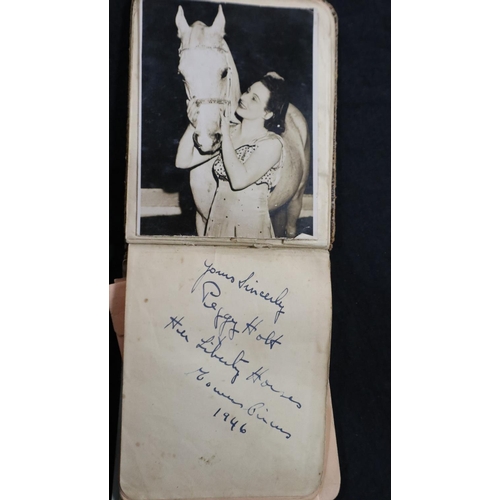 Yours Sincerely
Peggy Holt
Her Liberty Horses
Towers Circus
1946